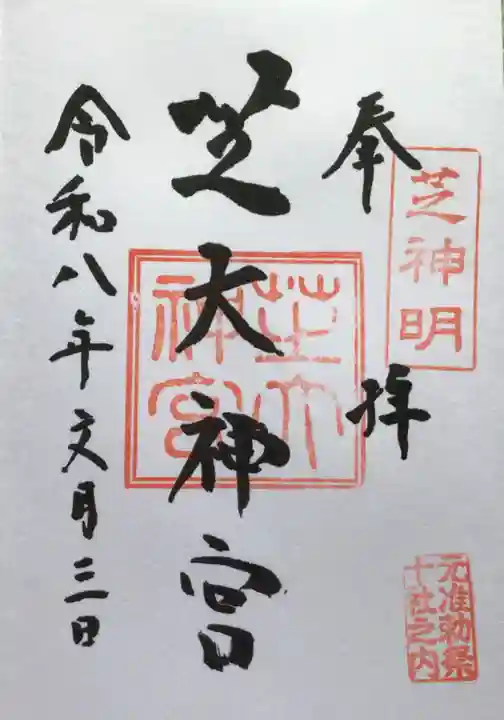 芝神明
奉拝
元准勅祭
十社之内
芝大神宮
芝大
神宮
令和八年文月三日